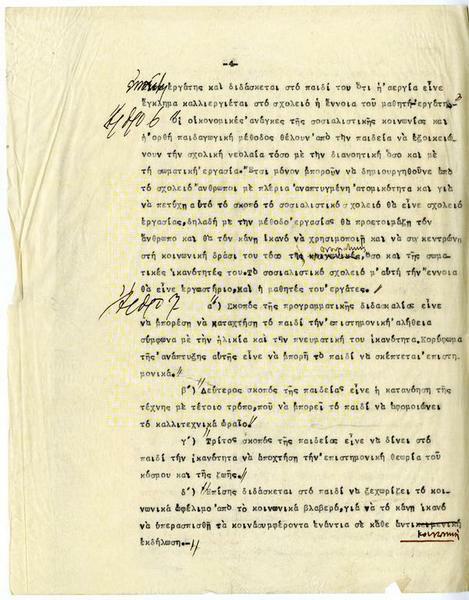 -4-
ἐργάτης καί διδάσκεται στό παιδί του ὅτι ἡ ἀεργία εἶνε
ἔγκλημα καλλιεργιέται στό σχολειό ἡ ἔννοια τοῦ μαθητή-ἐργάτη
Ἄρθρο 6 Οἱ οἰκονομικές ἀνάγκες τῆς σοσιαλιστικῆς κοινωνίας καί
ἡ ὀρθή παιδαγωγική μέθοδος θέλουν ἀπό τήν παιδεία νά ἐξοικειώ-
νουν τήν σχολική νεολαία τόσο μέ τήν διανοητική ὅσο καί μέ
τή σωματική ἐργασία. Ἔτσι μόνον μποροῦν νά δημιουργηθοῦνε ἀπό
τό σχολεῖο ἄνθρωποι μέ πλέρια ἀναπτυγμένη ἀτομικότητα καί γιά
νά πετύχη αὐτό τό σκοπό τό σοσιαλιστικό σχολεῖο θά εἶνε σχολεῖο
ἐργασίας, δηλαδή μέ τήν μέθοδο ἐργασίας θά προετοιμάζη τόν
ἄνθρωπο καί θά τόν κάνη ἱκανό νά χρησιμοποιῆ καί νά συγκεντρώνη
στή κοινωνική δράσι του τόσο τίς ὅσο καί τίς σωμα-
τικές ἱκανότητές του. Τό σοσιαλιστικό σχολειό μ' αὐτή τήν ἔννοια
θά εἶνε ἐργαστήριο, Καί ἡ μαθητές του ἐργάτες.
Ἄρθρο 7 α') Σκοπός τῆς προγραμματικῆς διδασκαλίας εἶνε
νά μπορέση νά καταχτήση τό παιδί τήν ἐπιστημονική ἀλήθεια
σύμφωνα μέ τήν ἡλικία καί τήν πνευματική του ἱκανότητα. Κορύφωμα
τῆς ἀνάπτυξης αὐτῆς εἶνε νά μπορῆ τό παιδί νά σκέπτεται ἐπιστη-
μονικά.
β') Δεύτερος σκοπός τῆς παιδείας εἶνε ἡ κατανόηση τῆς
τέχνης μέ τέτοιο τρόπο, πού νά μπορεῖ τό παιδί νά ἀφομοιώνει
τό καλλιτεχνικά ὡραῖο.
γ') Τρίτος σκοπός τῆς παιδείας εἶνε νά δίνει στό
παιδί τήν ἱκανότητα νά ἀποχτήση τήν ἐπιστημονική θεωρία τοῦ
κόσμου καί τῆς ζωῆς.
δ') Ἐπίσης διδάσκεται στό παιδί νά ξεχωρίζει τό κοι-
νωνικά ὠφέλιμο ἀπό τό κοινωνικά βλαβερό, γιά νά τό κάνη ἱκανό
νά ὑπερασπισθῆ τά κοινά συμφέροντα ἐνάντια σέ κάθε ἀντικοινωνική
ἐκδήλωση.-